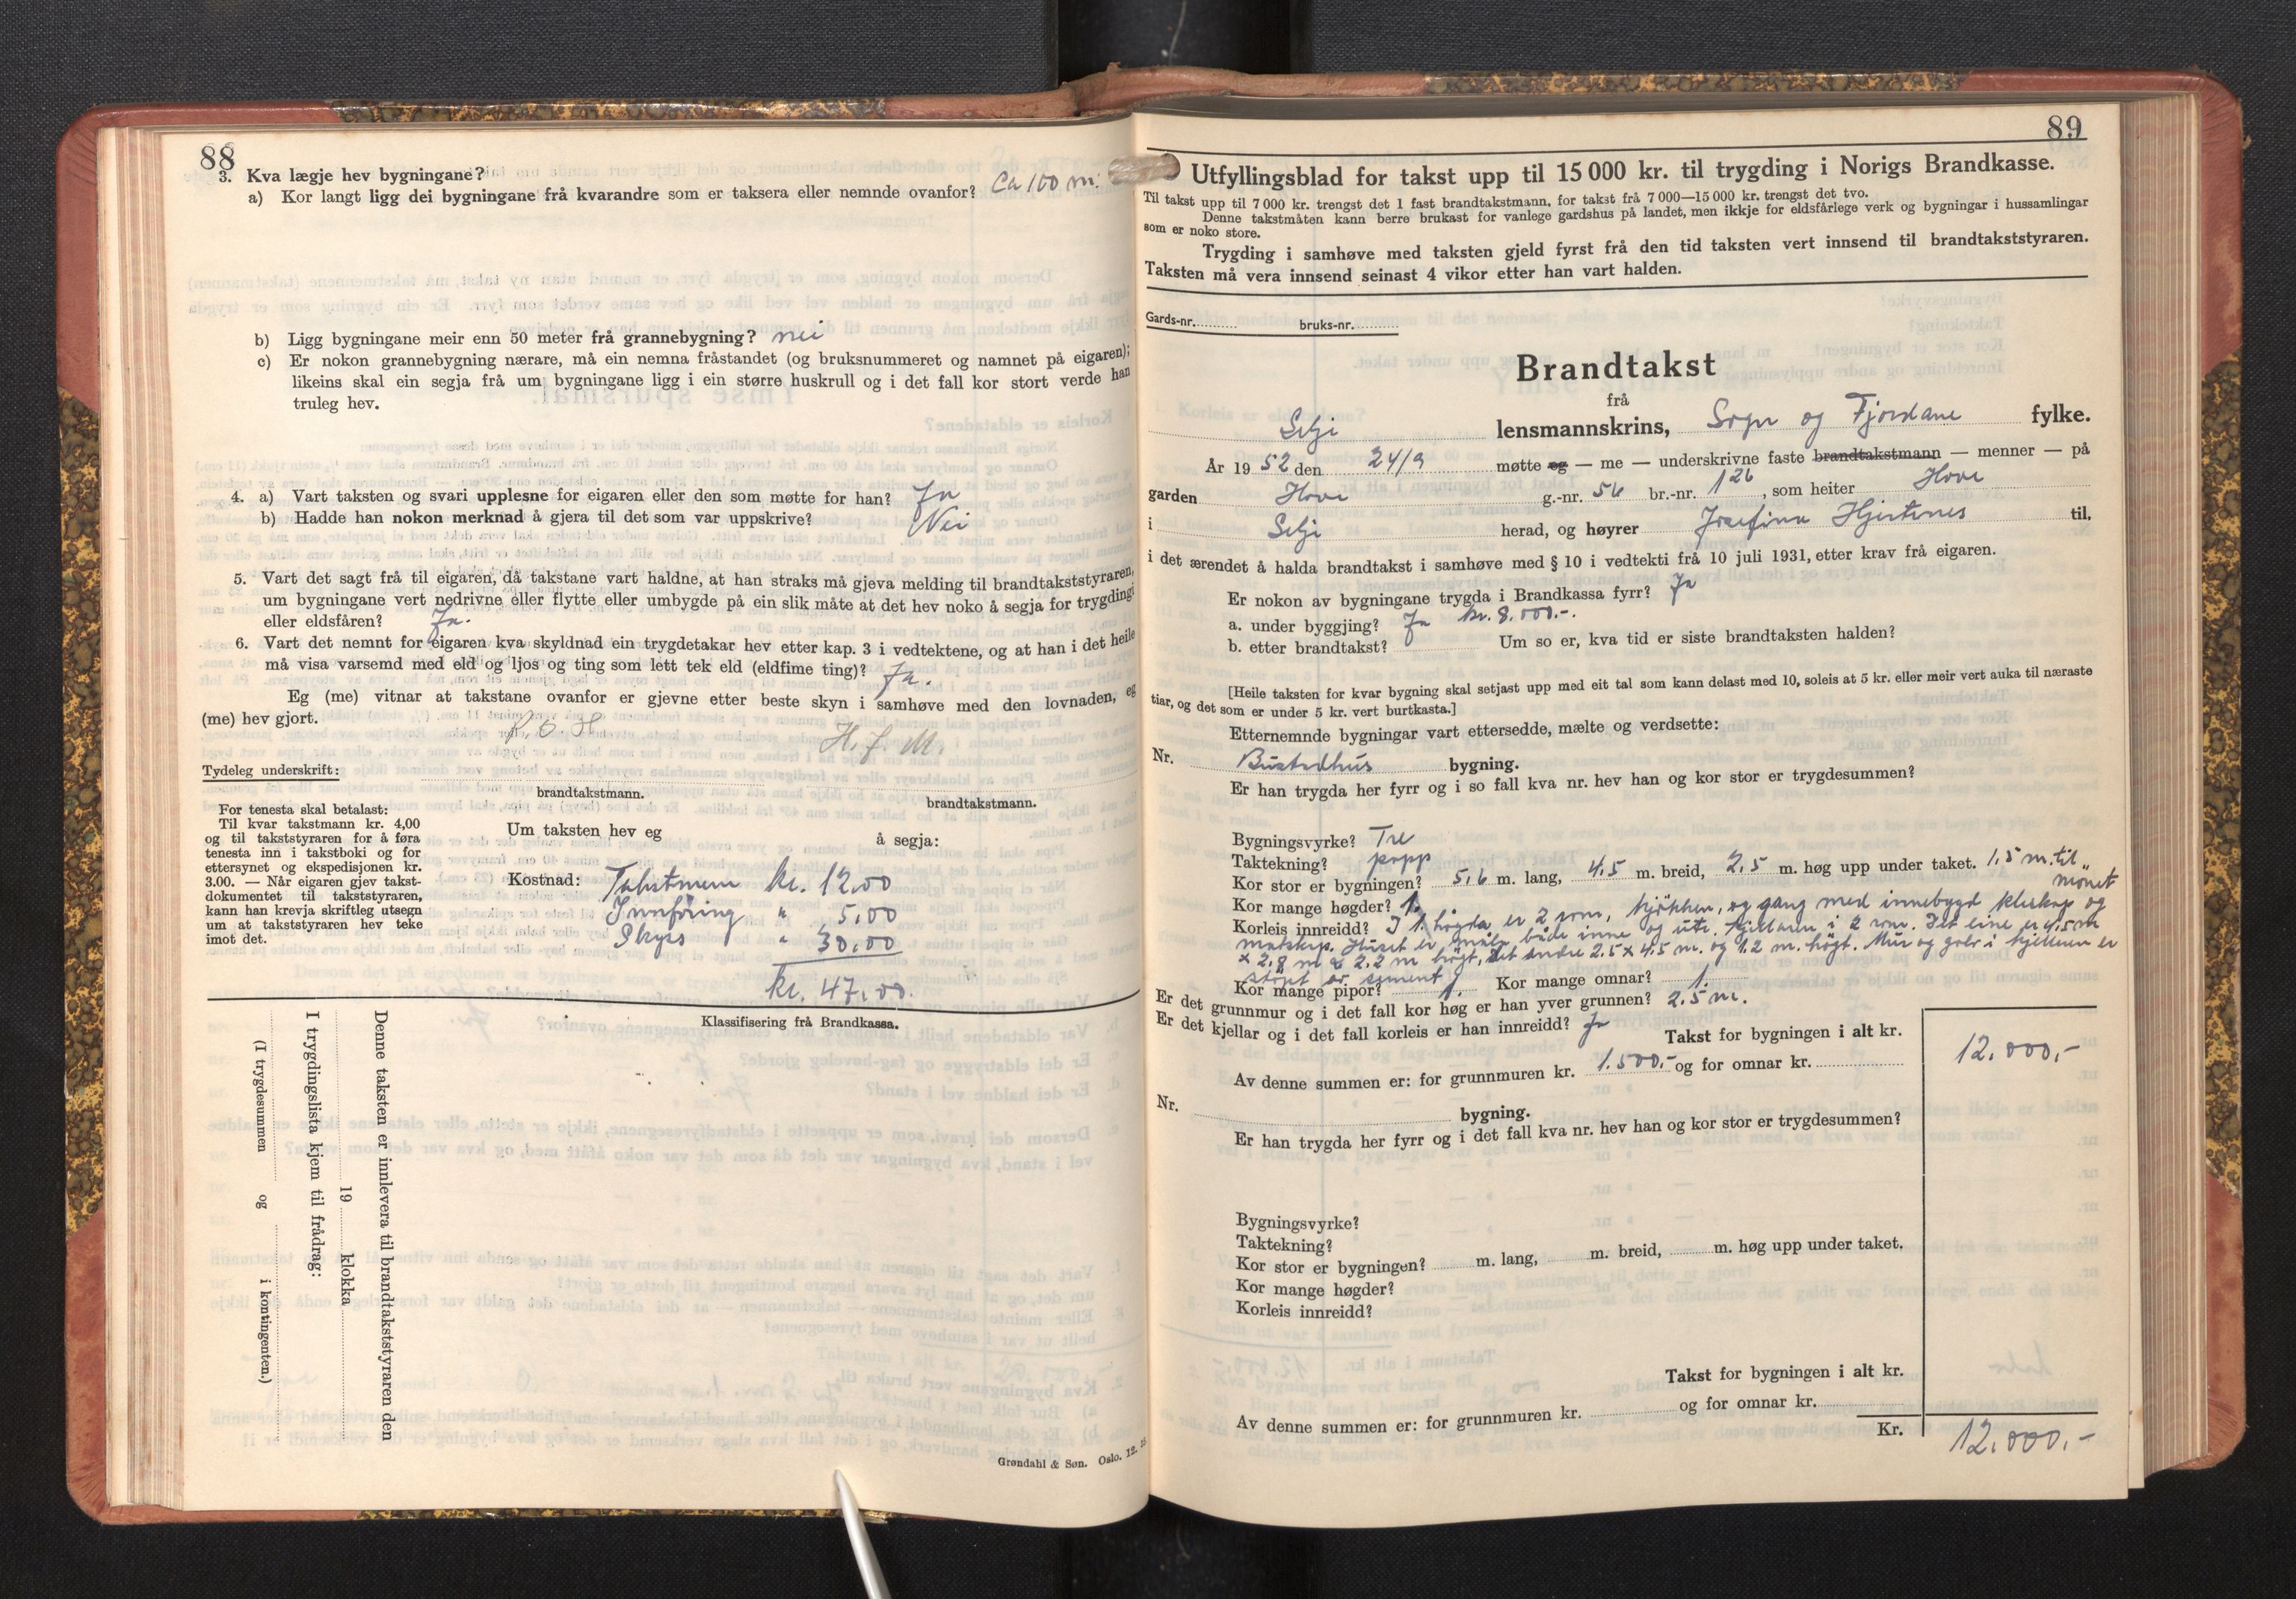 88
3. Kva lægje hev bygningane?
a) Kor langt ligg dei bygningane frå kvarandre som er taksera eller nemnde ovanfor? Ca 100 m.
b) Ligg bygningane meir enn 50 meter frå grannebygning? nei
c) Er nokon grannebygning nærare, må ein nemna fråstandet (og bruksnummeret og namnet på eigaren);
likeins skal ein segja frå um bygningane ligg i ein større huskrull og i det fall kor stort verde han
truleg hev.
4. a) Vart taksten og svari upplesne for eigaren eller den som møtte for han? Ja
b) Hadde han nokon merknad å gjera til det som var uppskrive? Nei
5. Vart det sagt frå til eigaren, då takstane vart haldne, at han straks må gjeva melding til brandtakststyraren,
um bygningane vert nedrivne eller flytte eller umbygde på ein slik måte at det hev noko å segja for trygdingi
eller eldsfåren? Ja.
6. Vart det nemnt for eigaren kva skyldnad ein trygdetakar hev etter kap. 3 i vedtektene, og at han i det heile
må visa varsemd med eld og ljos og ting som lett tek eld (eldfime ting)? Ja.
Eg (me) vitnar at takstane ovanfor er gjevne etter beste skyn i samhøve med den lovnaden, eg
(me) hev gjort.
K. O. H. H. J. M.
Tydeleg underskrift:
brandtakstmann. brandtakstmann.
For tenesta skal betalast:
Til kvar takstmann kr. 4,00
og til takststyraren for å føra
tenesta inn i takstboki og for
ettersynet og ekspedisjonen kr.
3.00. — Når eigaren gjev takst-
dokumentet til takststyraren,
kann han krevja skriftleg utsegn
um at takststyraren hev teke
imot det.
Um taksten hev eg å segja:
Kostnad: Takstmenn kr. 12.00
Innføring " 5.00
Skyss " 30.00
kr. 47.00.
Klassifisering frå Brandkassa.
Denne taksten er innlevera til brandtakststyraren den
19 klokka
I trygdingslista kjem til frådrag:
(I trygdesummen og i kontingenten.)
Grøndahl & Søn. Oslo. 12.
89
Utfyllingsblad for takst upp til 15 000 kr. til trygding i Norigs Brandkasse.
Til takst upp til 7 000 kr. trengst det 1 fast brandtakstmann, for takst frå 7 000—15 000 kr. trengst det tvo.
Denne takstmåten kann berre brukast for vanlege gardshus på landet, men ikkje for eldsfårlege verk og bygningar i hussamlingar
som er noko store.
Trygding i samhøve med taksten gjeld fyrst frå den tid taksten vert innsend til brandtakststyraren.
Taksten må vera innsend seinast 4 vikor etter han vart halden.
Gards-nr. bruks-nr.
Brandtakst
frå
Selje lensmannskrins, Sogn og Fjordane fylke.
År 1952 den 24/9 møtte eg — me — underskrivne faste brandtakstmann — menner — på
garden Hove g.-nr. 56 br.-nr. 126, som heiter Hove
i Selje herad, og høyrer Josefine Hjertenes til,
i det ærendet å halda brandtakst i samhøve med § 10 i vedtekti frå 10 juli 1931, etter krav frå eigaren.
Er nokon av bygningane trygda i Brandkassa fyrr? Ja
a. under byggjing? Ja kr. 8.000.-.
b. etter brandtakst? Um so er, kva tid er siste brandtaksten halden?
[Heile taksten for kvar bygning skal setjast upp med eit tal som kann delast med 10, soleis at 5 kr. eller meir vert auka til næraste
tiar, og det som er under 5 kr. vert burtkasta.]
Etternemnde bygningar vart ettersedde, mælte og verdsette:
Nr. Bustadhus bygning.
Er han trygda her fyrr og i so fall kva nr. hev han og kor stor er trygdesummen?
Bygningsvyrke? Tre
Taktekning? papp
Kor stor er bygningen? 5,6 m. lang, 4.5 m. breid, 2,5 m. høg upp under taket. 1.5 m. til
mønet
Kor mange høgder? 1.
Korleis innreidd? I 1. høgda er 2 rom, kjökken, og gang med innebygd kleskap og
matskap. Huset er måla både inne og ute. Kjellaren i 2 rom. Det eine er 4.5 m
x 2.8 m & 2.2 m høgt, det andre 2.5 x 4.5 m. og 1.2 m. høgt. Mur og golv i kjellaren er
støypt av sement.
Kor mange pipor? 1. Kor mange omnar? 1.
Er det grunnmur og i det fall kor høg er han yver grunnen? 2.5 m.
Er det kjellar og i det fall korleis er han innreidd? Ja
Takst for bygningen i alt kr. 12.000,-
Av denne summen er: for grunnmuren kr. 1.500,- og for omnar kr.
Nr. bygning.
Er han trygda her fyrr og i det fall kva nr. hev han og kor stor er trygdesummen?
Bygningsvyrke?
Taktekning?
Kor stor er bygningen? m. lang, m. breid, m. høg upp under taket.
Kor mange høgder?
Korleis innreidd?
Takst for bygningen i alt kr.
Av denne summen er: for grunnmuren kr. og for omnar kr.
Kr. 12.000,-